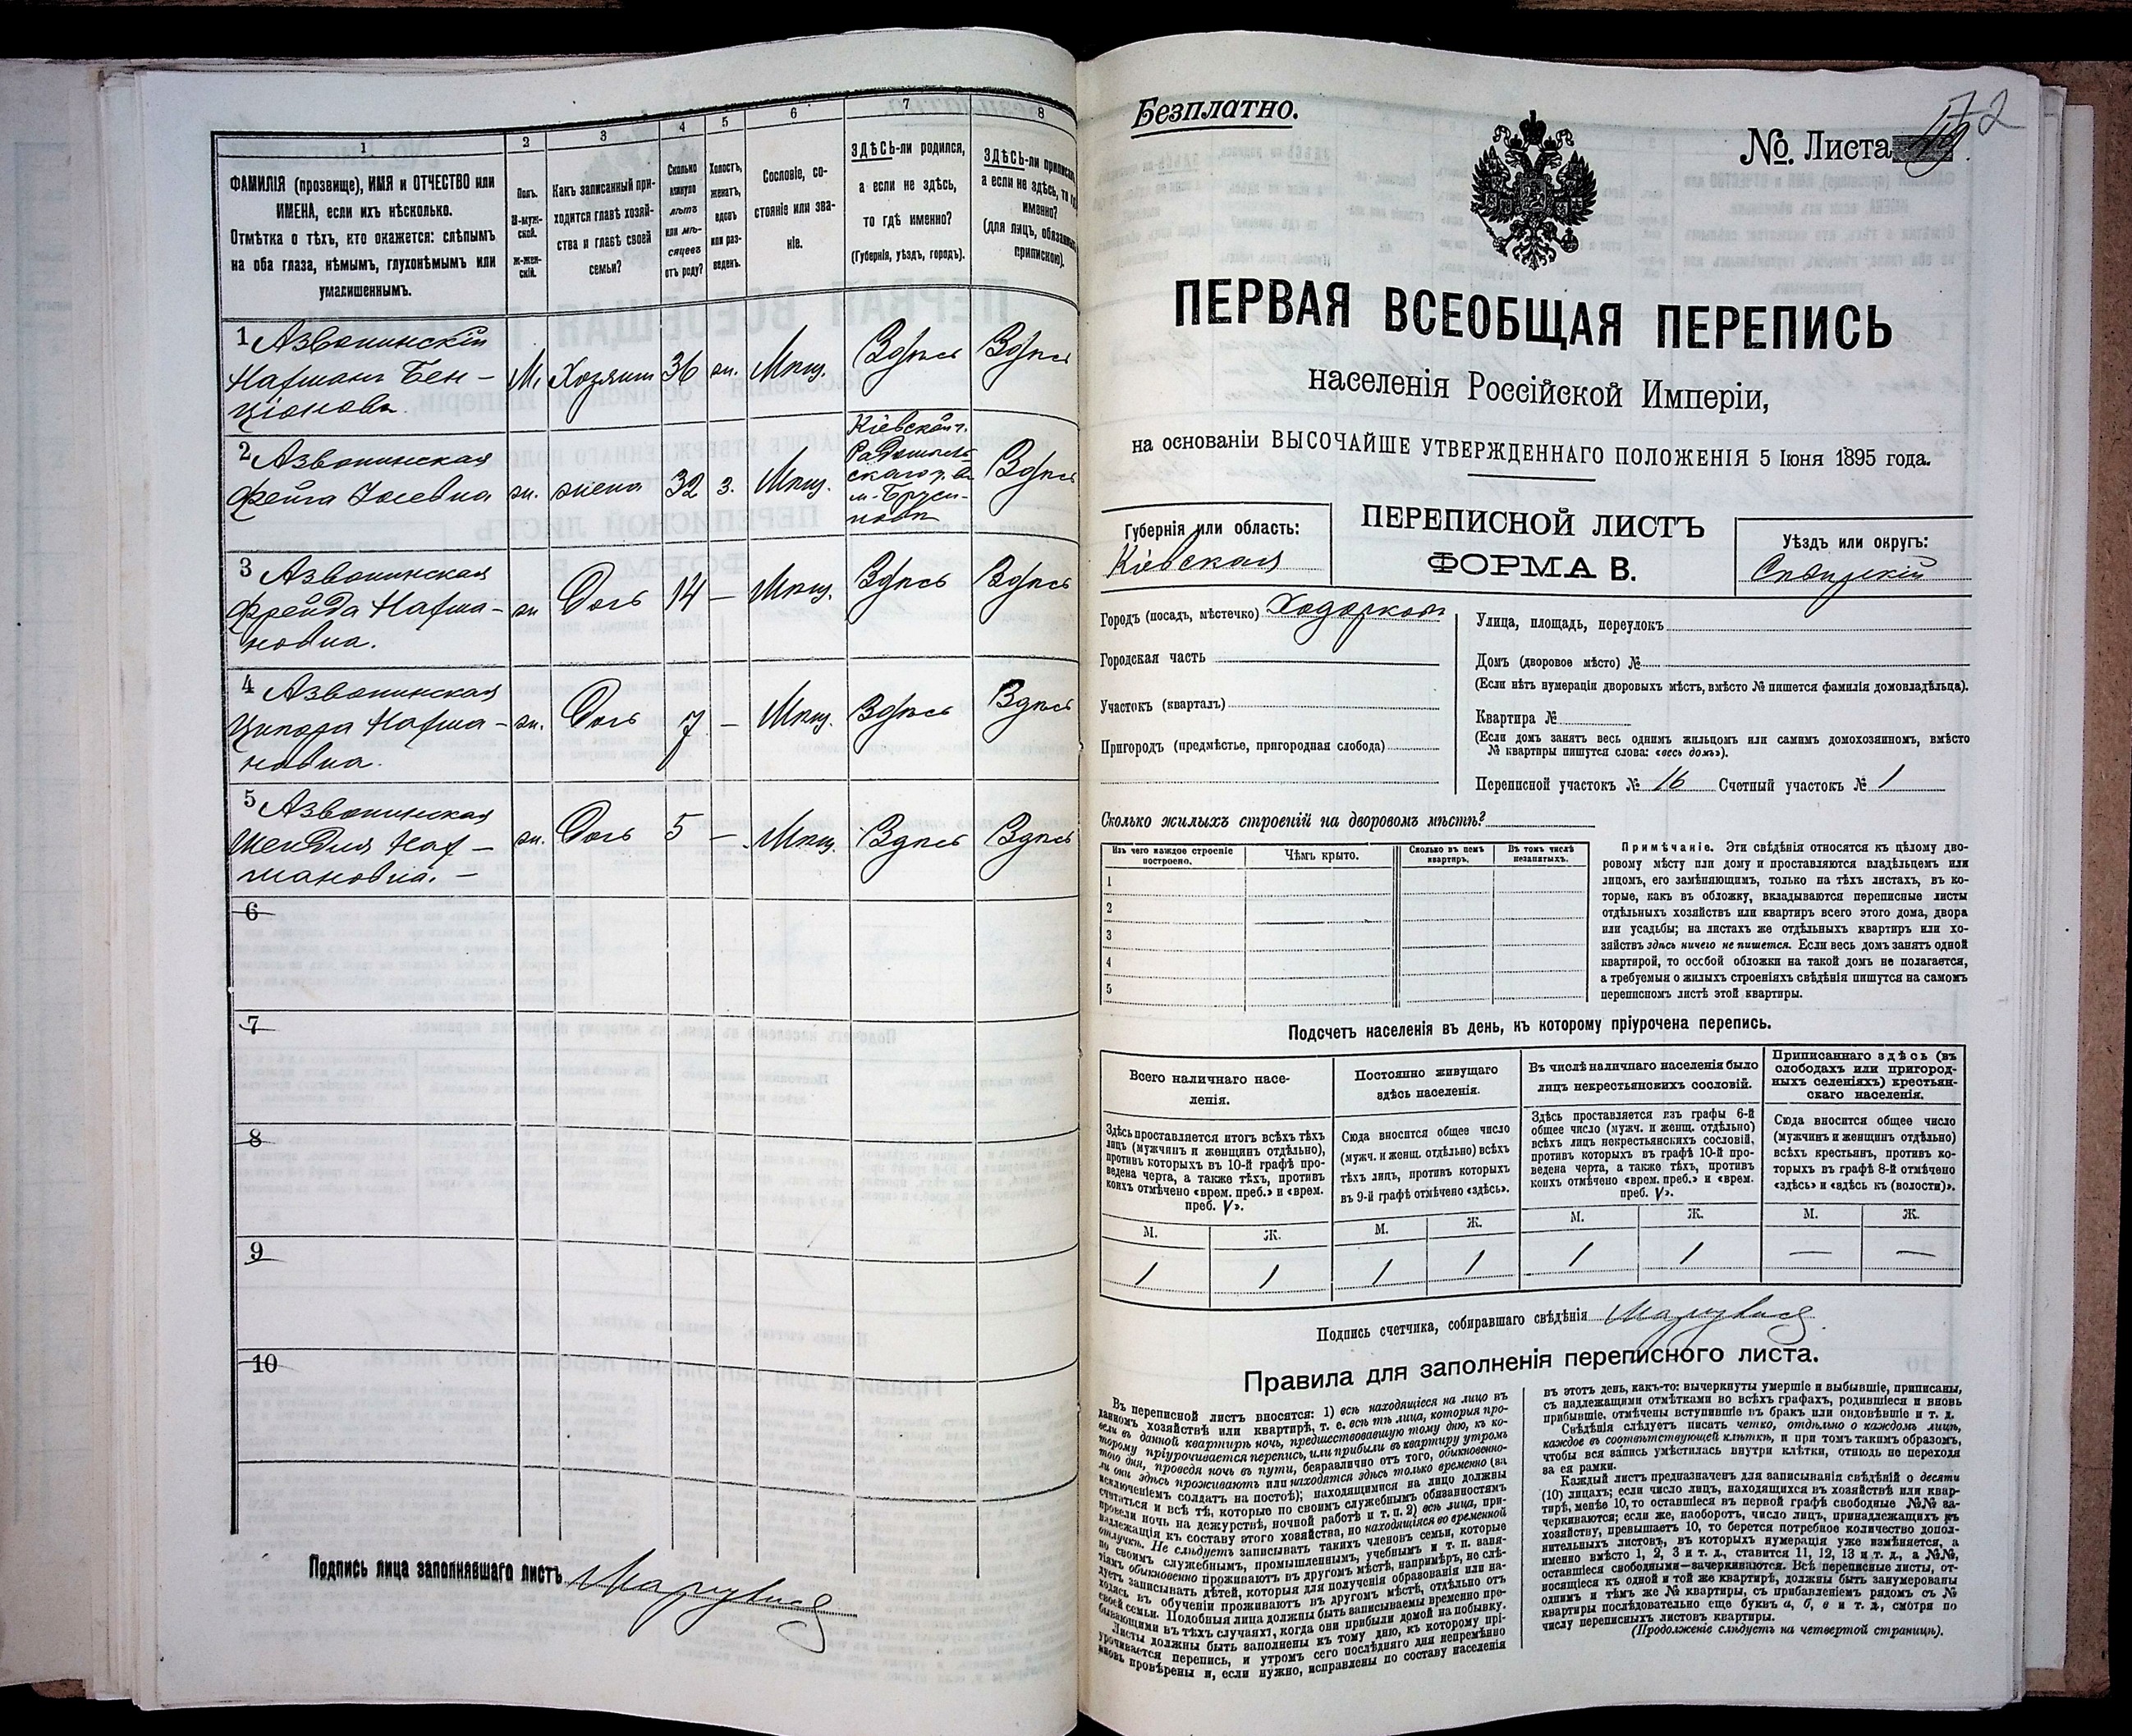 1
2
3
4
5
6
7
8
ФАМИЛІЯ (прозвище), ИМЯ и ОТЧЕСТВО или
ИМЕНА, если ихъ нѣсколько.
Отмѣтка о тѣхъ, кто окажется: слѣпымъ
на оба глаза, нѣмымъ, глухонѣмымъ или
умалишеннымъ.
Полъ.
М-муж-
ской.
ж-жен-
скій.
Какъ записанный при-
ходится главѣ хозяй-
ства и главѣ своей
семьи?
Сколько
минуло
лѣтъ
или мѣ-
сяцевъ
отъ роду?
Холостъ,
женатъ,
вдовъ
или раз-
веденъ.
Сословіе, со-
стояніе или зва-
ніе.
ЗДѢСЬ-ли родился,
а если не здѣсь,
то гдѣ именно?
(Губернія, уѣздъ, городъ).
ЗДѢСЬ-ли приписанъ,
а если не здѣсь, то гдѣ
именно?
(для лицъ, обязанныхъ
припискою).
1 Азвонинскій
Нафманъ Бен-
ціоновъ.
М. Хозяинъ 36 ж. Мѣщ. Здѣсь Здѣсь
2 Азвонинская
Фейга Іосевна
ж. жена 32 з. Мѣщ.
Кіевской г.
Радомысль
скаго у. въ
м. Бруси-
ловѣ
Здѣсь
3 Азвонинская
Фрейда Нафма-
новна.
ж Дочь 14 — Мѣщ. Здѣсь Здѣсь
4 Азвонинская
Ципора Нафма-
новна.
ж. Дочь 7 — Мѣщ. Здѣсь Здѣсь
5 Азвонинская
Шендля Наф-
мановна. —
ж. Дочь 5 — Мѣщ. Здѣсь Здѣсь
6
7
8
9
10
Подпись лица заполнявшаго листъ
Безплатно.
72
№. Листа 49
ПЕРВАЯ ВСЕОБЩАЯ ПЕРЕПИСЬ
населенія Россійской Имперіи,
на основаніи ВЫСОЧАЙШЕ УТВЕРЖДЕННАГО ПОЛОЖЕНІЯ 5 Іюня 1895 года.
Губернія или область:
Кіевская
ПЕРЕПИСНОЙ ЛИСТЪ
ФОРМА В.
Уѣздъ или округъ:
Сквирскій
Городъ (посадъ, мѣстечко) Ходорковъ
Городская часть
Участокъ (кварталъ)
Пригородъ (предмѣстье, пригородная слобода)
Улица, площадь, переулокъ
Домъ (дворовое мѣсто) №
(Если нѣтъ нумераціи дворовыхъ мѣстъ, вмѣсто № пишется фамилія домовладѣльца).
Квартира №
(Если домъ занятъ весь однимъ жильцомъ или самимъ домохозяиномъ, вмѣсто
№ квартиры пишутся слова: «весь домъ»).
Переписной участокъ № 16 Счетный участокъ № 1
Сколько жилыхъ строеній на дворовомъ мѣстѣ?
Изъ чего каждое строеніе
построено.
Чѣмъ крыто.
Сколько въ немъ
квартиръ.
Въ томъ числѣ
незанятыхъ.
1
2
3
4
5
Примѣчаніе. Эти свѣдѣнія относятся къ цѣлому дво-
ровому мѣсту или дому и проставляются владѣльцемъ или
лицомъ, его замѣняющимъ, только на тѣхъ листахъ, въ ко-
торые, какъ въ обложку, вкладываются переписные листы
отдѣльныхъ хозяйствъ или квартиръ всего этого дома, двора
или усадьбы; на листахъ же отдѣльныхъ квартиръ или хо-
зяйствъ здѣсь ничего не пишется. Если весь домъ занятъ одной
квартирой, то особой обложки на такой домъ не полагается,
а требуемыя о жилыхъ строеніяхъ свѣдѣнія пишутся на самомъ
переписномъ листѣ этой квартиры.
Подсчетъ населенія въ день, къ которому пріурочена перепись.
Всего наличнаго насе-
ленія.
Постоянно живущаго
здѣсь населенія.
Въ числѣ наличнаго населенія было
лицъ некрестьянскихъ сословій.
Приписаннаго здѣсь (въ
слободахъ или пригород-
ныхъ селеніяхъ) крестьян-
скаго населенія.
Здѣсь проставляется итогъ всѣхъ тѣхъ
лицъ (мужчинъ и женщинъ отдѣльно),
противъ которыхъ въ 10-й графѣ про-
ведена черта, а также тѣхъ, противъ
коихъ отмѣчено «врем. преб.» и «врем.
преб. V».
Сюда вносится общее число
(мужч. и женщ. отдѣльно) всѣхъ
тѣхъ лицъ, противъ которыхъ
въ 9-й графѣ отмѣчено «здѣсь».
Здѣсь проставляется изъ графы 6-й
общее число (мужч. и женщ. отдѣльно)
всѣхъ лицъ некрестьянскихъ сословій,
противъ которыхъ въ графѣ 10-й про-
ведена черта, а также тѣхъ, противъ
коихъ отмѣчено «врем. преб.» и «врем.
преб. V».
Сюда вносится общее число
(мужчинъ и женщинъ отдѣльно)
всѣхъ крестьянъ, противъ ко-
торыхъ въ графѣ 8-й отмѣчено
«здѣсь» и «здѣсь къ (волости)».
М. Ж. М. Ж. М. Ж. М. Ж.
1 1 1 1 1 1 — —
Подпись счетчика, собиравшаго свѣдѣнія
Правила для заполненія переписного листа.
Въ переписной листъ вносятся: 1) всѣ находящіеся на лицо въ
данномъ хозяйствѣ или квартирѣ, т. е. всѣ тѣ лица, которыя про-
вели въ данной квартирѣ ночь, предшествовавшую тому дню, къ ко-
торому пріурочивается перепись, или прибыли въ квартиру утромъ
того дня, проведя ночь въ пути, безразлично отъ того, обыкновенно-
ли они здѣсь проживаютъ или находятся здѣсь только временно (за
исключеніемъ солдатъ на постоѣ); находящимися на лицо должны
считаться и всѣ тѣ, которые по своимъ служебнымъ обязанностямъ
провели ночь на дежурствѣ, ночной работѣ и т. п. 2) всѣ лица, при-
надлежащія къ составу этого хозяйства, но находящіяся во временной
отлучкѣ. Не слѣдуетъ записывать такихъ членовъ семьи, которые
по своимъ служебнымъ, промышленнымъ, учебнымъ и т. п. заня-
тіямъ обыкновенно проживаютъ въ другомъ мѣстѣ, напримѣръ, не слѣ-
дуетъ записывать дѣтей, которыя для полученія образованія или на-
ходясь въ обученіи проживаютъ въ другомъ мѣстѣ, отдѣльно отъ
своей семьи. Подобныя лица должны быть записываемы временно пре-
бывающими въ тѣхъ случаяхъ, когда они прибыли домой на побывку.
Листы должны быть заполнены къ тому дню, къ которому прі-
урочивается перепись, и утромъ сего послѣдняго дня непремѣнно
вновь провѣрены и, если нужно, исправлены по составу населенія
въ этотъ день, какъ-то: вычеркнуты умершіе и выбывшіе, приписаны,
съ надлежащими отмѣтками во всѣхъ графахъ, родившіеся и вновь
прибывшіе, отмѣчены вступившіе въ бракъ или овдовѣвшіе и т. д.
Свѣдѣнія слѣдуетъ писать четко, отдѣльно о каждомъ лицѣ,
каждое въ соотвѣтствующей клѣткѣ, и при томъ такимъ образомъ,
чтобы вся запись умѣстилась внутри клѣтки, отнюдь не переходя
за ея рамки.
Каждый листъ предназначенъ для записыванія свѣдѣній о десяти
(10) лицахъ; если число лицъ, находящихся въ хозяйствѣ или квар-
тирѣ, менѣе 10, то оставшіеся въ первой графѣ свободные №№ за-
черкиваются; если же, наоборотъ, число лицъ, принадлежащихъ къ
хозяйству, превышаетъ 10, то берется потребное количество допол-
нительныхъ листовъ, въ которыхъ нумерація уже измѣняется, а
именно вмѣсто 1, 2, 3 и т. д., ставится 11, 12, 13 и т. д., а №№,
оставшіеся свободными—зачеркиваются. Всѣ переписные листы, от-
носящіеся къ одной и той же квартирѣ, должны быть занумерованы
однимъ и тѣмъ же № квартиры, съ прибавленіемъ рядомъ съ №
квартиры послѣдовательно еще буквъ а, б, в и т. д., смотря по
числу переписныхъ листовъ квартиры.
(Продолженіе слѣдуетъ на четвертой страницѣ).